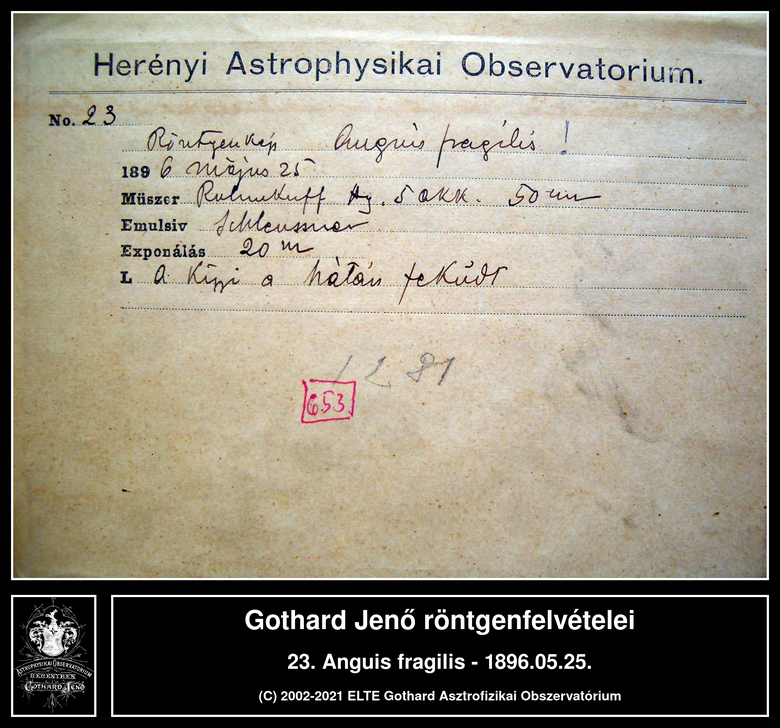 Herényi Astrophysikai Observatorium.
No. 23
Röntgenkép Anguis fragilis !
1896 május 25
Müszer Ruhmkorff 5 akk. 50 mm
Emulsiv Schleussner
Exponálás 20 m
L A Kigyi a hátán feküdt
1281
653
Gothard Jenő röntgenfelvételei
23. Anguis fragilis - 1896.05.25.
(C) 2002-2021 ELTE Gothard Asztrofizikai Obszervatórium
ASTROPHYSIKAI OBSERVATORIUM
HERÉNYBEN
GOTHARD JENŐ